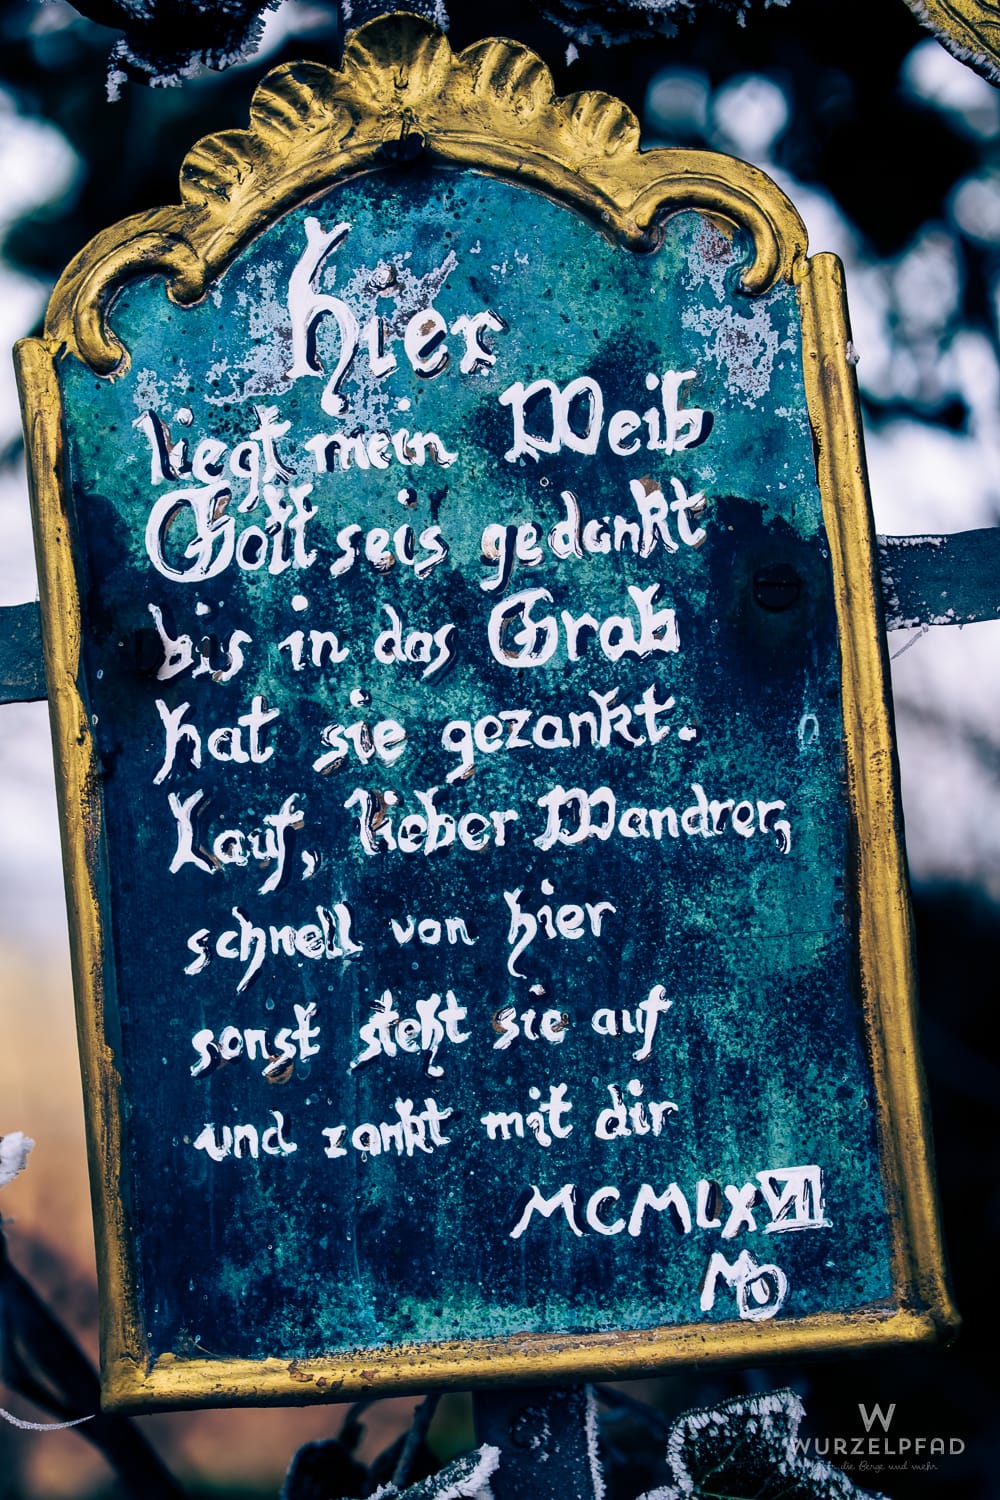 hier
liegt mein Weib
Gott seis gedankt
bis in das Grab
hat sie gezankt.
Lauf, lieber Wandrer,
schnell von hier
sonst steht sie auf
und zankt mit dir
MCMLXVII
MO
W
WURZELPFAD
die Berge und mehr